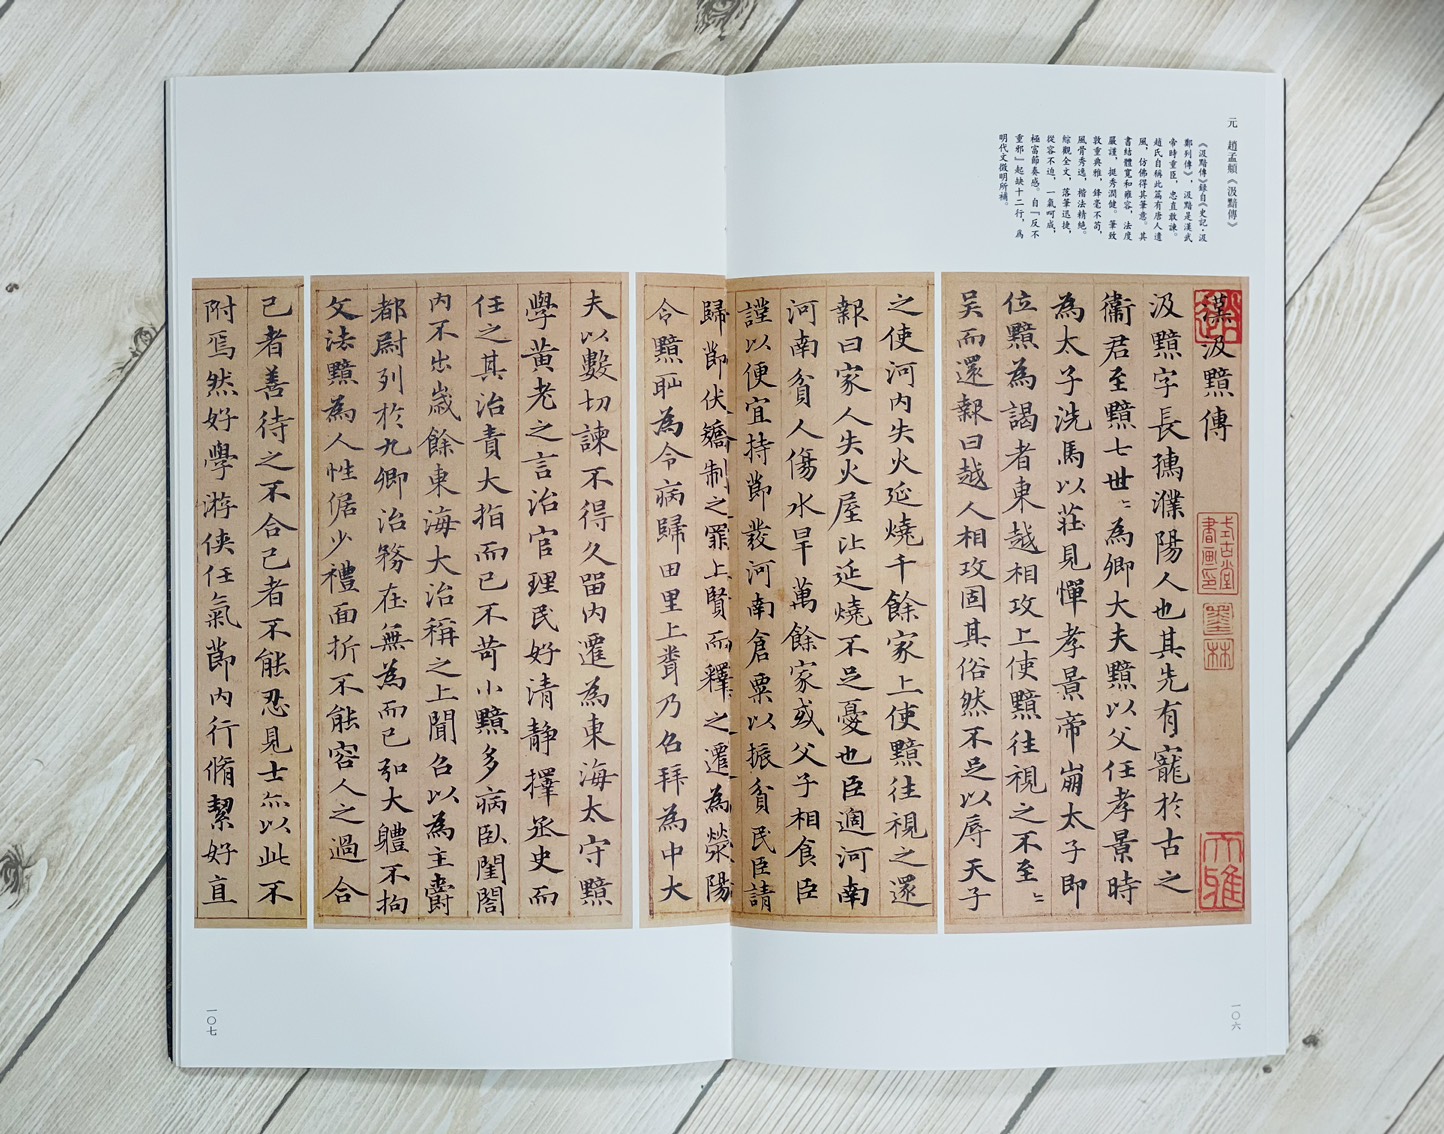 元 趙孟頫《汲黯傳》
《汲黯傳》錄自《史記·汲
鄭列傳》，汲黯是漢武
帝時重臣，忠直敢諫。
趙氏自稱此篇有唐人遺
風，仿佛得其筆意。其
書結體寬和雍容，法度
嚴謹，挺秀潤健。筆致
敦重典雅，鋒毫不苟，
風骨秀逸，楷法精絕。
綜觀全文，落筆迅捷，
從容不迫，一氣呵成，
極富節奏感。自「反不
重邪」起缺十二行，爲
明代文徵明所補。
漢汲黯傳
式古堂書画印
墨林
大雅
汲黯字長孺濮陽人也其先有寵於古之
衞君至黯七世〻為卿大夫黯以父任孝景時
為太子洗馬以莊見憚孝景帝崩太子即
位黯為謁者東越相攻上使黯往視之不至〻
吳而還報曰越人相攻固其俗然不足以辱天子
之使河内失火延燒千餘家上使黯往視之還
報曰家人失火屋比延燒不足憂也臣過河南
河南貧人傷水旱萬餘家或父子相食臣
謹以便宜持節發河南倉粟以振貧民臣請
歸節伏矯制之罪上賢而釋之遷為滎陽
令黯恥為令病歸田里上聞乃召拜為中大
夫以數切諫不得久留内遷為東海太守黯
學黃老之言治官理民好清静擇丞史而
任之其治責大指而已不苛小黯多病臥閨閤
内不出歲餘東海大治稱之上聞召以為主爵
都尉列於九卿治務在無為而已弘大軆不拘
文法黯為人性倨少禮面折不能容人之過合
己者善待之不合己者不能忍見士亦以此不
附焉然好學游俠任氣節内行脩絜好直
一〇六
一〇七